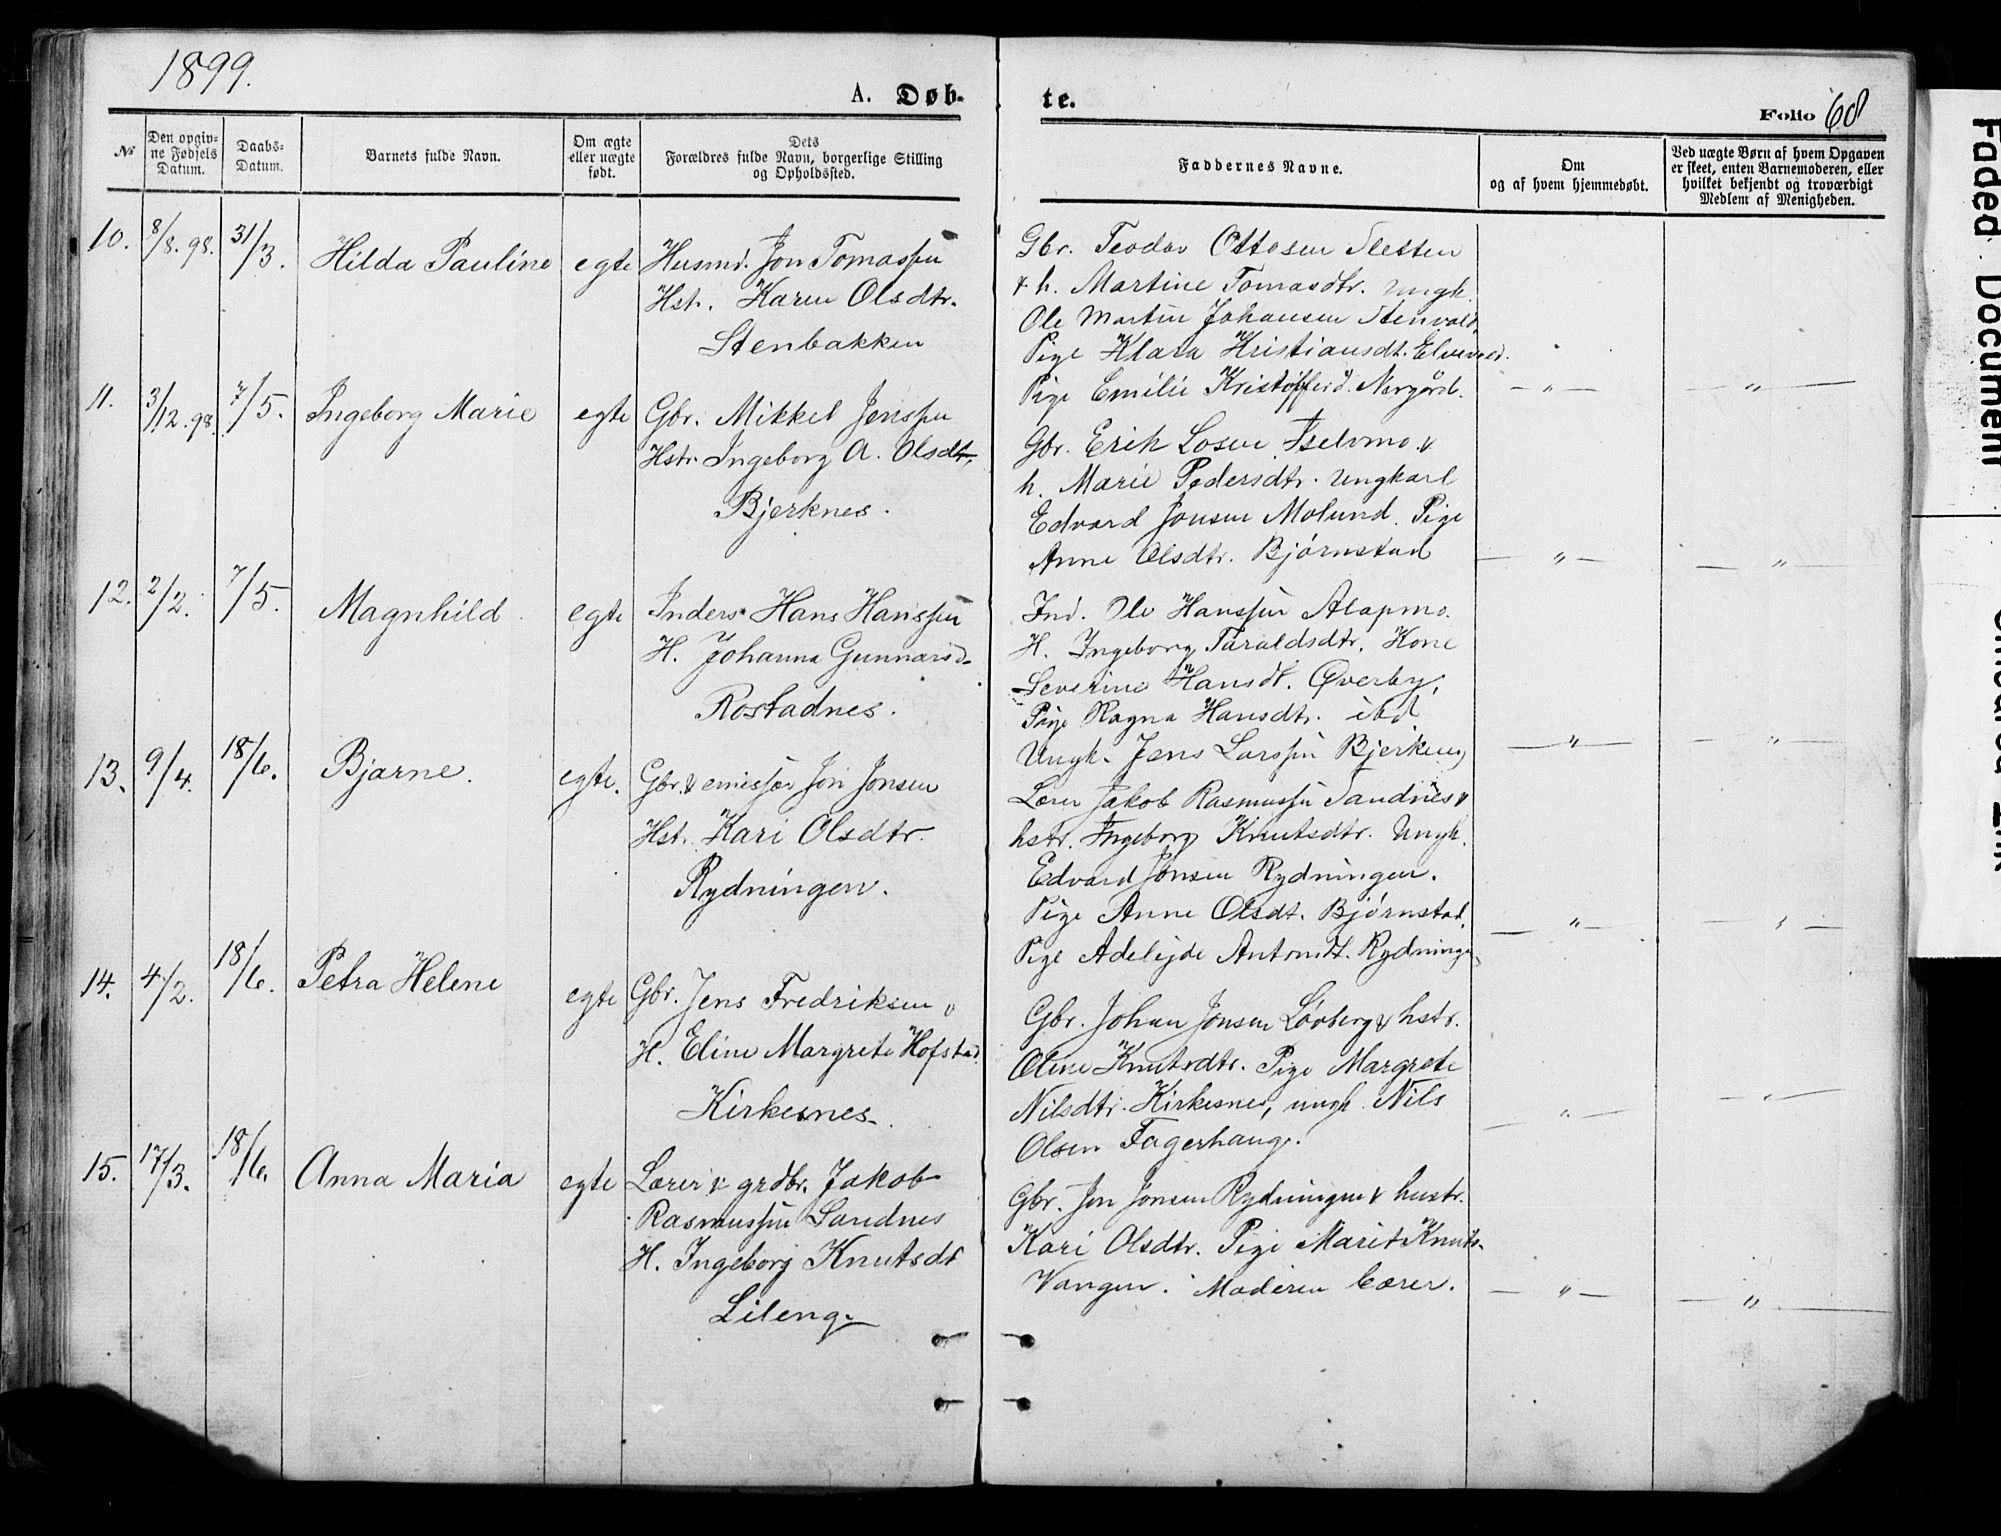 1899.
A. Døb-
te.
Folio 68
No
Den opgiv-
ne Fødsels
Datum.
Daabs-
Datum.
Barnets fulde Navn.
Om ægte
eller uægte
født.
Dets
Forældres fulde Navn, borgerlige Stilling
og Opholdssted.
Faddernes Navne.
Om
og af hvem hjemmedøbt.
Ved uægte Børn af hvem Opgaven
er skeet, enten Barnemoderen, eller
hvilket bekjendt og troværdigt
Medlem af Menigheden.
10. 8/8. 98. 31/3. Hilda Pauline egte Husmd. Jon Tomassen
Hst. Karen Olsdtr.
Stenbakken
Gbr. Teodor Ottosen Sletten
& h. Martine Tomasdtr. Ungk.
Ole Martin Johansen Stenvold
Pige Klara Kristiansdt. Elvevold.
Pige Emilie Kristofferd. Nergård. — " — "
11. 3/12. 98. 7/5. Ingeborg Marie egte Gbr. Mikkel Jenssen
Hstr. Ingeborg A. Olsdtr,
Bjerknes.
Gbr. Erik Losen Iselvmo &
h. Marie Pedersdtr. Ungkarl
Edvard Jonsen Molund. Pige
Anne Olsdtr. Bjørnstad — " — — " —
12. 2/2. 7/5. Magnhild egte Inders. Hans Hanssen
H. Johanna Gunnarsd.
Rostadnes.
Ind. Ole Hanssen Alapmo.
H. Ingeborg Taraldsdtr. Kone
Severine Hansdt. Øverby,
Pige Ragna Hansdtr. ibd
Ungk. Jens Larssen Bjerknes — " — — " —
13. 9/4. 18/6. Bjarne. egte. Gbr. & emissær Jon Jonsen
Hst. Kari Olsdtr.
Rydningen.
Lærer Jakob Rasmussen Sandnes &
hstr. Ingeborg Knutsdtr. Ungk.
Edvard Jonsen Rydningen.
Pige Anne Olsdt. Bjørnstad, — " — — " —
Pige Adelejde Antonsdt. Rydningen
14. 4/2. 18/6. Petra Helene egte Gbr. Jens Fredriksen &
H. Eline Margrete Hofstad.
Kirkesnes.
Gbr. Johan Jonsen Løvberg & hstr.
Oline Knutsdtr. Pige Margrete
Nilsdtr. Kirkesnes, ungk. Nils — " — — " —
Olsen Fagerhaug.
15. 17/3. 18/6. Anna Maria egte Lærer & grdbr. Jakob
Rasmussen Sandnes
H. Ingeborg Knutsdt
Lileng.
Gbr. Jon Jonsen Rydningen & hustr.
Kari Olsdtr. Pige Marit Knuts-
Vangen. Moderen bærer. — " — — " —
Faded Document